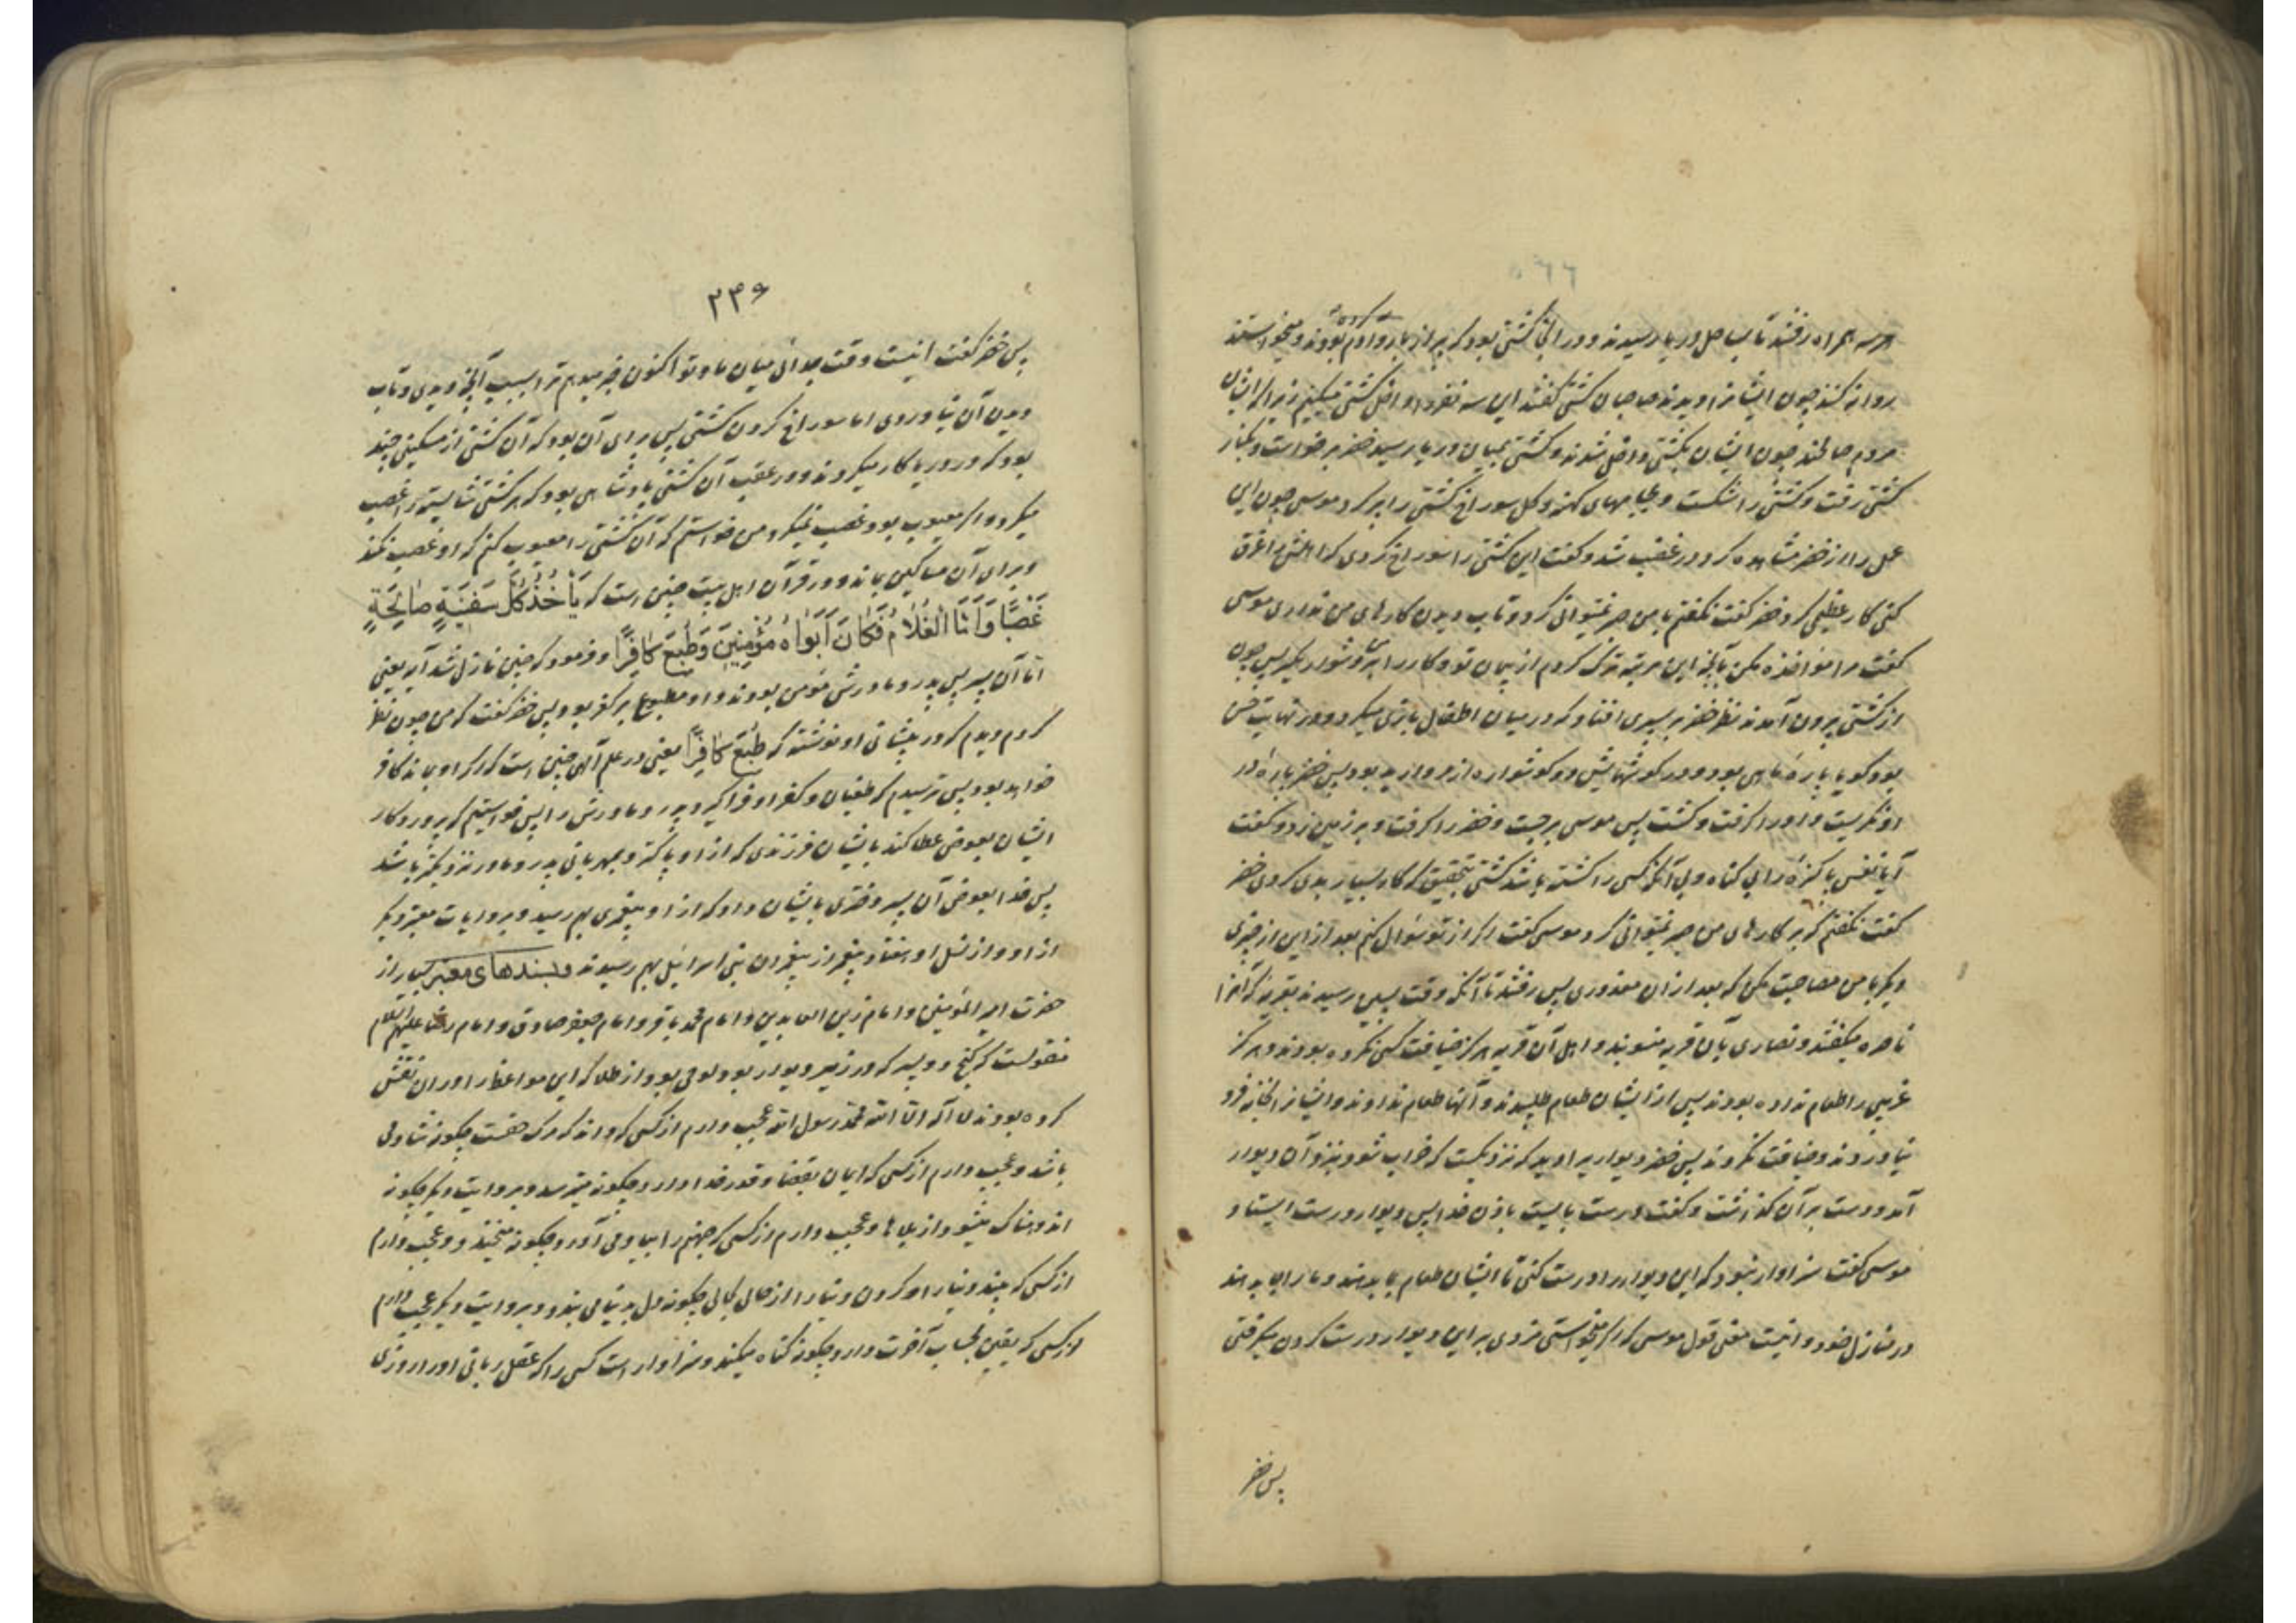 هر سه همراه رفتند تا بساحل دریا رسیدند و در انجا کشتی بود که پر از بار و آدم کرده بودند و میخواستند
روانه کنند چون ایشانرا دیدند صاحبان کشتی گفتند این سه نفر را داخل کشتی میکنیم زیرا که ایشان
مردم صالحند چون ایشان بکشتی داخل شدند و کشتی بمیان دریا رسید خضر برخواست و بکنار
کشتی رفت و کشتی را شکست و بجامهای کهنه و گل سوراخ کشتی را پر کرد موسی چون این
عمل را از خضر مشاهده کرد در غضب شد و گفت این کشتی را سوراخ کردی که اهلش را غرق
کنی کار عظیمی کرد خضر گفت نگفتم با من صبر نمیتوانی کرد و تاب دیدن کارهای من نداری موسی
گفت مرا مؤاخذه مکن بآنچه این مرتبه ترک کردم از پیمان تو و کار را بر من دشوار مگیر پس چون
از کشتی بیرون آمدند نظر خضر بر پسری افتاد که در میان اطفال بازی میکرد و در نهایت حسن
بود گویا پاره ماهی بود و در گوشهایش دو گوشواره از مروارید بود پس خضر پاره در
او نگریست و او را گرفت و کشت پس موسی برجست و خضر را گرفت و بر زمین زد و گفت
آیا نفس پاکیزه را بی گناه و بی آنکه کسی را کشته باشد کشتی بتحقیق که کار بسیار بدی کردی خضر
گفت نگفتم که بر کارهای من صبر نمیتوانی کرد موسی گفت اگر از تو سؤال کنم بعد از این از چیزی
دیگر با من مصاحبت مکن که بعد از ان معذوری پس رفتند تا آنکه وقت پسین رسیدند بقریه که آنرا
ناصره میگفتند و نصاری بآن قریه منسوبند و اهل آن قریه هرگز ضیافت کسی نکرده بودند و هرگز
غریبی را طعام نداده بودند پس از ایشان طعام طلبیدند و آنها طعام ندادند و ایشانرا بخانه فرود
نیاوردند و ضیافت نکردند پس خضر دیواریرا دید که نزدیکست که خراب شود بنزد آن دیوار
آمد و دست بر آن گذاشت و گفت درست بایست باذن خدا پس دیوار درست ایستاد
موسی گفت سزاوار نبود که این دیوار را درست کنی تا ایشان طعام بما بدهند و ما را جا بدهند
در منازل خود و اینست معنی قول موسی که اگر میخواستی مزدی بر این دیوار درست کردن میگرفتی
پس خضر
۲۴۶
پس خضر گفت اینست وقت جدائی میان ما و تو اکنون خبر میدهم ترا بسبب آنچه دیدی و تاب
دیدن آن نیاوردی اما سوراخ کردن کشتی پس برای آن بود که آن کشتی از مسکینی چند
بود که در دریا کار میکردند و در عقب آن کشتی پادشاهی بود که هر کشتی شایسته را غصب
میکرد و اگر معیوب بود غصب نمیکرد من خواستم که آن کشتی را معیوب کنم که او غصب نکند
و برای آن مساکین بماند و در قرآن اهل بیت چنین است که یَأخُذُ کُلَّ سَفینَةٍ صالِحَةٍ
غَصْبًا وَاَمَّا الْغُلامُ فَکانَ اَبَواهُ مُؤْمِنَیْنِ وَطُبِعَ کافِرًا و فرمود که چنین نازل شد آیه یعنی
اما آن پسر پس پدر و مادرش مؤمن بودند و او مطبوع بر کفر بود پس خضر گفت که من چون نظر
کردم دیدم که در پیشانی او نوشته که طُبِعَ کافِرًا یعنی در علم آلهی چنین است که اگر او بماند کافر
خواهد بود پس ترسیدم که طغیان و کفر او فراگیرد پدر و مادرش را پس خواستیم که پروردگار
ایشان بعوض عطا کند بایشان فرزندی که از او پاکتر و بمهربانی پدر و مادر نزدیکتر باشد
پس خدا بعوض آن پسر دختری بایشان داد که از او پیغمبری بهم رسید و بروایات معتبر دیگر
از او و از نسل او هفتاد پیغمبر از پیغمبران بنی اسرائیل بهم رسیدند و بسندهای معتبر بسیار از
حضرت امیر المؤمنین و امام زین العابدین و امام محمد باقر و امام جعفر صادق و امام رضا علیهم السلام
منقولست که گنج دو پسر که در زیر دیوار بود لوحی بود از طلا که این مواعظ را در ان نقش
کرده بودند لا اله الا الله محمد رسول الله عجب دارم از کسی که داند که مرگ حقست چگونه شاد می
باشد و عجب دارم از کسی که ایمان بقضا و قدر خدا دارد چگونه میترسد و بروایت دیگر چگونه
اندوهناک میشود از بلاها و عجب دارم از کسی که جهنم را بیاد می آورد چگونه میخندد و عجب دارم
از کسی که بیند دنیا را و گردیدن دنیا را از حالی بحالی چگونه دل بدنیا می بندد و بروایت دیگر عجب دارم
از کسی که یقین بحساب آخرت دارد چگونه گناه میکند و سزاوار است کسی را که عقل ربانی او را روزی